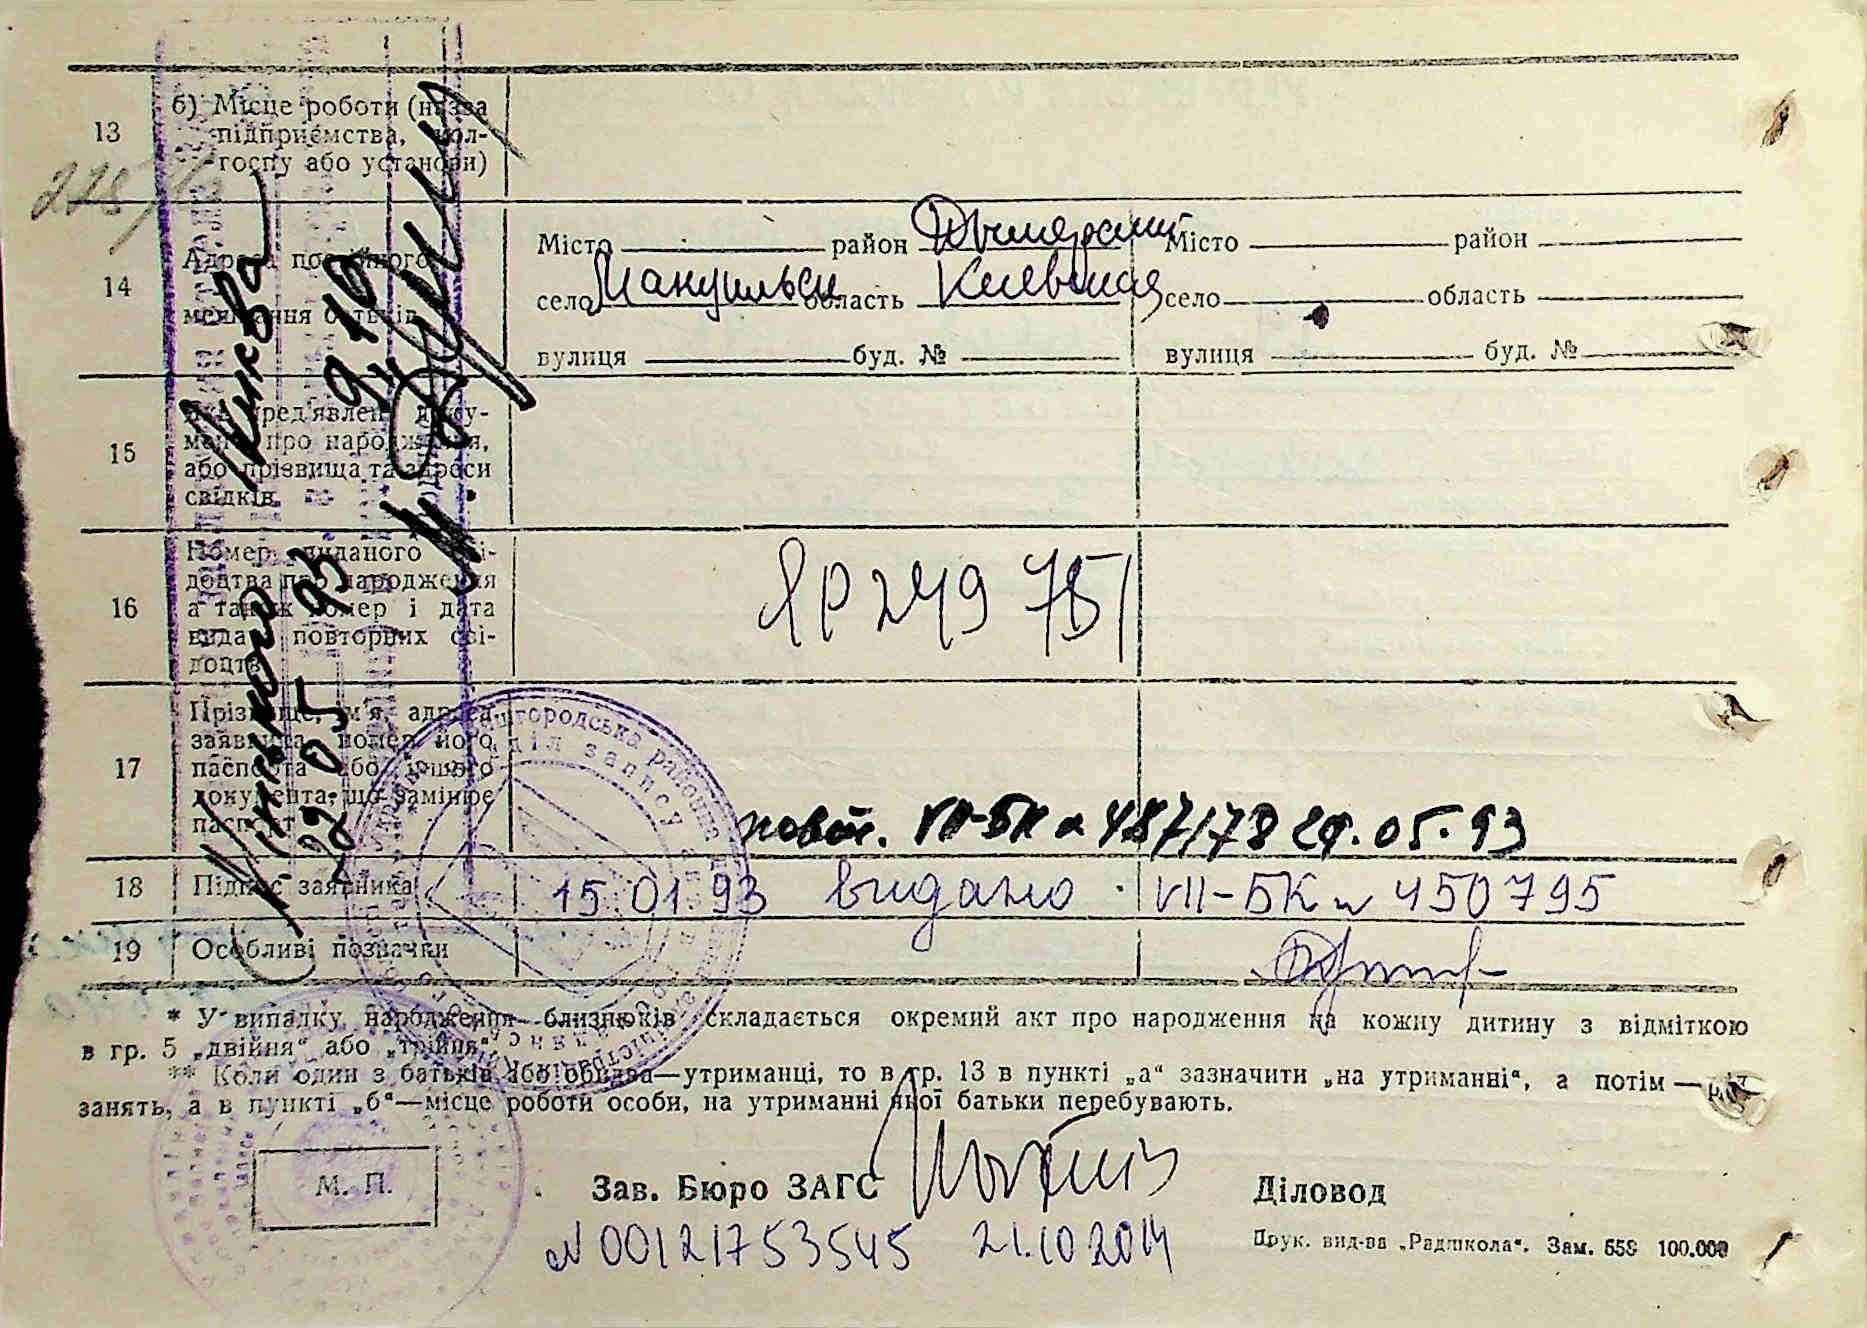 13
б) Місце роботи (назва
підприємства, кол-
госпу або установи)
14
Адреса постійного
мешкання батьків
Місто район Дымерский
село область Киевская
вулиця буд. №
Місто район
село область
вулиця буд. №
15
Які пред'явлені доку-
менти про народження,
або прізвища та адреси
свідків
16
Номер виданого сві-
доцтва про народження
а також номер і дата
видачі повторних сві-
доцтв
ЯР 249 751
17
Прізвище, ім'я, адреса
заявника, номер його
паспорта або іншого
документа, що замінює
паспорт
повт. VII-БК № 487178 29.05.93
18
Підпис заявника
15.01.93 видано VII-БК № 450795
19
Особливі позначки
* У випадку народження близнюків складається окремий акт про народження на кожну дитину з відміткою
в гр. 5 „двійня“ або „трійня“.
** Коли один з батьків або обидва—утриманці, то в гр. 13 в пункті „а“ зазначити „на утриманні“, а потім — рід
занять, а в пункті „б“—місце роботи особи, на утриманні якої батьки перебувають.
М. П.
Зав. Бюро ЗАГС
Діловод
N 00121753545 21.10.2014
Друк. вид-ва „Радшкола“. Зам. 558 100.000